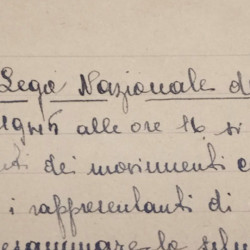 Lega Nazionale d
1945 alle ore 16. si
ti dei movimenti e
i rappresentanti di
esaminare la